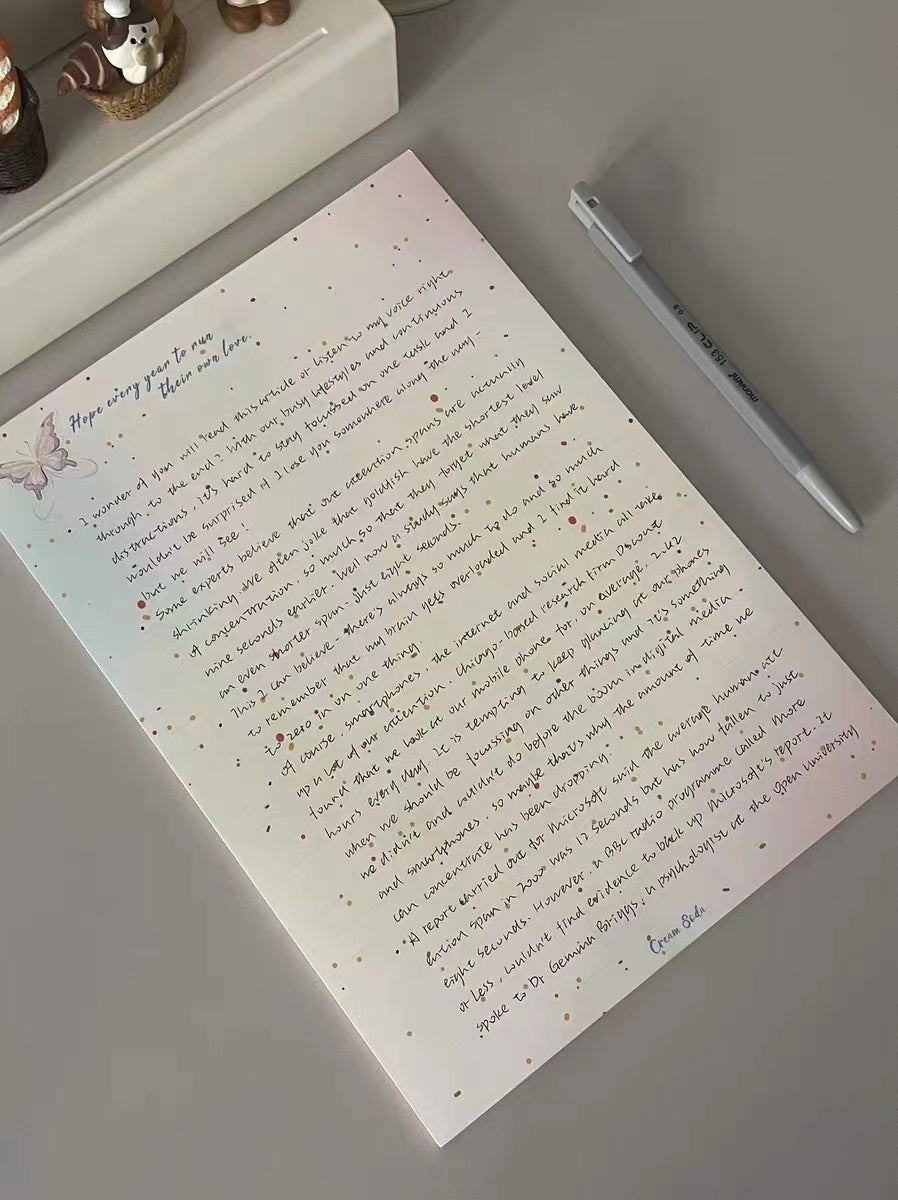 Hope every year to run
their own love.
I wonder if you will read this article or listen to my voice right
through to the end? With our busy lifestyles and continuous
distractions, it's hard to stay focussed on one task and I
wouldn't be surprised if I lose you somewhere along the way-
but we will see!
Some experts believe that our attention spans are actually
shrinking. We often joke that goldfish have the shortest level
of concentration, so much so that they forget what they saw
nine seconds earlier. Well now a study says that humans have
an even shorter span - just eight seconds.
This I can believe - there's always so much to do and so much
to remember that my brain gets overloaded and I find it hard
to zero in on one thing.
Of course, smartphones, the internet and social media all take
up a lot of our attention. Chicago-based research firm Dscout
found that we look at our mobile phone for, on average, 2.42
hours every day. It is tempting to keep glancing at our phones
when we should be focussing on other things and it's something
we didn't and couldn't do before the boom in digital media
and smartphones. So maybe that's why the amount of time we
can concentrate has been dropping.
A report carried out for Microsoft said the average human att
ention span in 2000 was 12 seconds but has now fallen to just
eight seconds. However, a BBC radio programme called More
or Less, couldn't find evidence to back up Microsoft's report. It
spoke to Dr Gemma Briggs, a psychologist at the Open University
Cream Soda
monami 153 CLIP 0.5